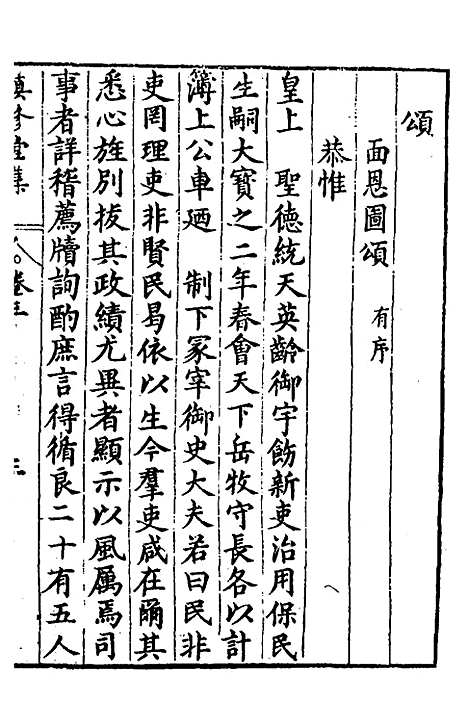 頌
面恩圖頌 有序
恭惟
皇上 聖德統天英齡御宇飭新吏治用保民
生嗣大寶之二年春會天下岳牧守長各以計
簿上公車廼 制下冢宰御史大夫若曰民非
吏罔理吏非賢民曷依以生今羣吏咸在爾其
悉心旌別拔其政績尤異者顯示以風厲焉司
事者詳稽薦牘詢酌庶言得循良二十有五人
堂集 卷三 三